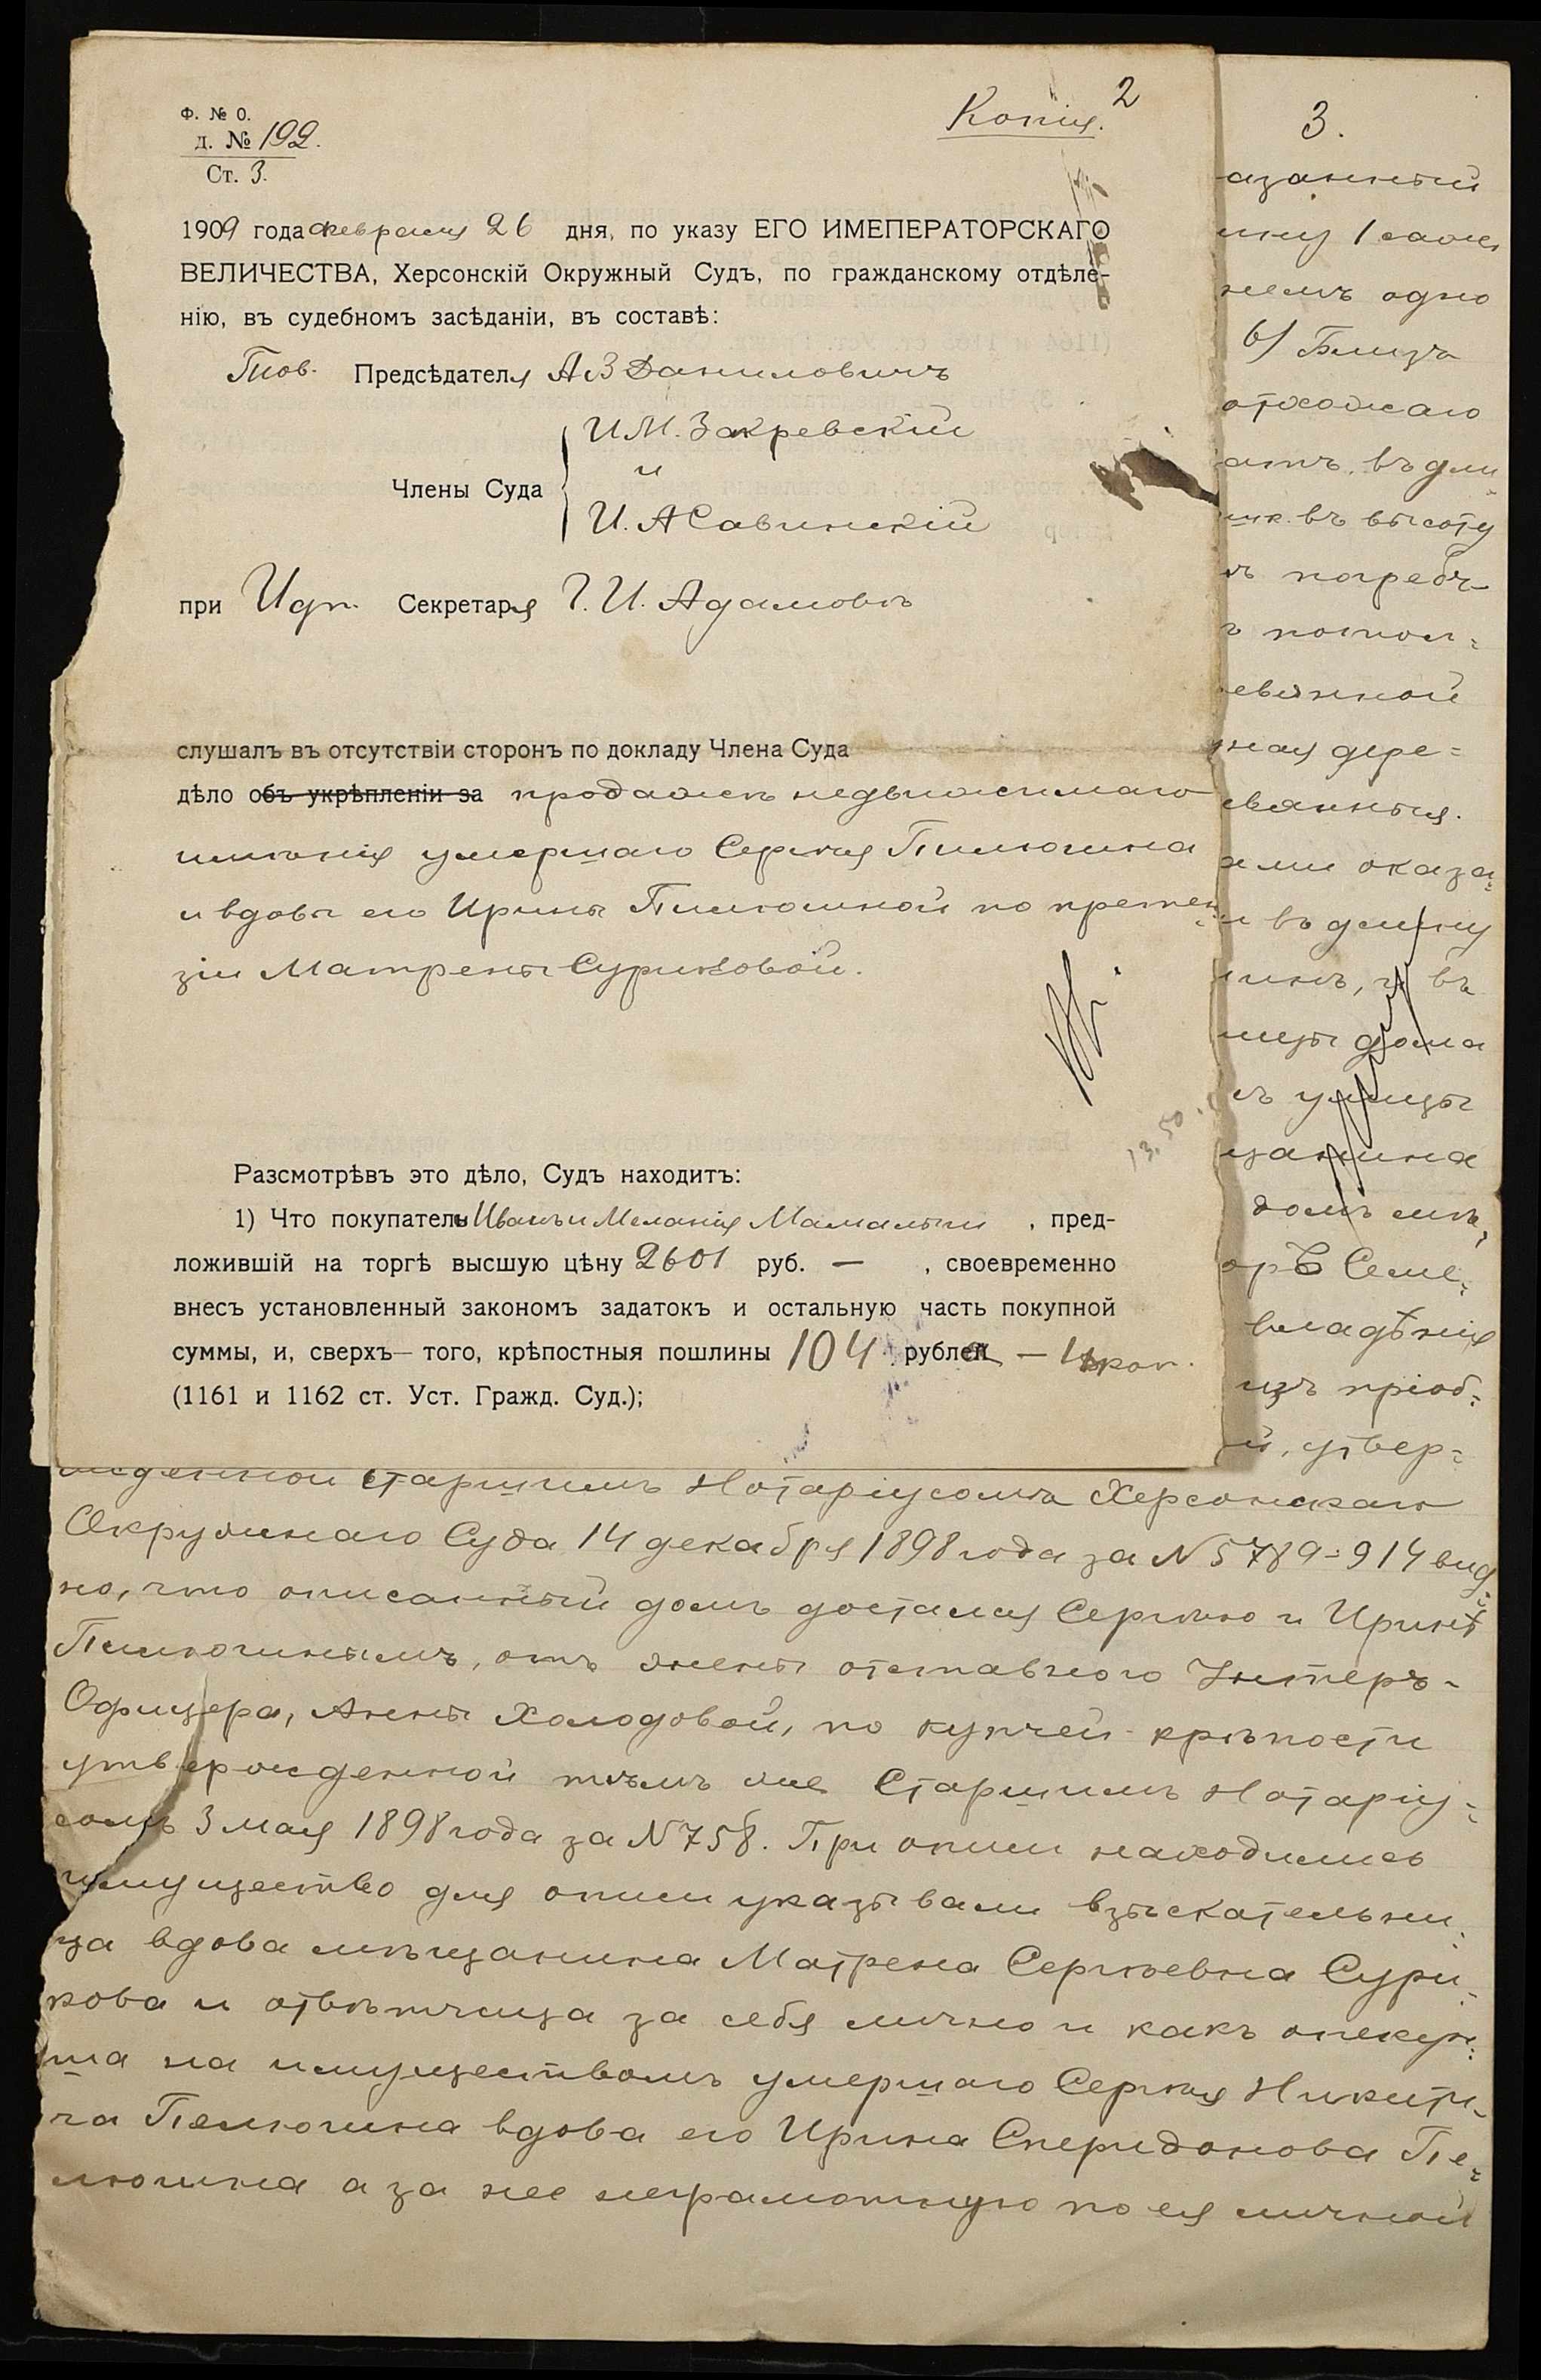 Копія. 2
Ф. № 0.
Д. № 192.
Ст. 3.
1909 года февраля 26 дня, по указу ЕГО ИМЕПЕРАТОРСКАГО
ВЕЛИЧЕСТВА, Херсонскій Окружный Судъ, по гражданскому отдѣле-
нію, въ судебномъ засѣданіи, въ составѣ:
Тов. Предсѣдателя А З Даниловичъ
И М. Закревскій
и
Члены Суда
И. А Савинскій
при Идп. Секретаря Г. И. Адамовъ
слушалъ въ отсутствіи сторонъ по докладу Члена Суда
дѣло объ укрѣпленіи за продажѣ недвижимаго
имѣнія умершаго Сергѣя Пилюгина
и вдовы его Ирины Пилюгиной по претен
зіи Матрены Суриковой.
13.50
Разсмотрѣвъ это дѣло, Судъ находитъ:
1) Что покупатель Иванъ и Меланія Мамалыги, пред-
ложившій на торгѣ высшую цѣну 2601 руб. — , своевременно
внесъ установленный закономъ задатокъ и остальную часть покупной
суммы, и, сверхъ— того, крѣпостныя пошлины 104 рублея — 4 коп.
(1161 и 1162 ст. Уст. Гражд. Суд.);
3.
азанный
ину 1 саж
немъ одно
б) Близъ
отхожаго
въ дли
въ высоту
ъ погребъ
ъ потол=
евянной
ная дере=
евянныя.
ами оказа=
и въ длину
и въ
ицы дома
съ улицы
щанина
домъ мѣ,
оръ Семе=
владѣнія
изъ пріоб=
й, утвер=
жденной Старшимъ Нотаріусомъ Херсонскаго
Окружнаго Суда 14 декабря 1898 года за N 5789=914 вид=
но, что описанный домъ достался Сергѣю и Иринѣ
Пилюгинымъ, отъ жены отставного Унтеръ-
Офицера, Анны Холодовой, по купчей крѣпости
утвержденной тѣмъ же Старшимъ Нотаріу=
сомъ 3 мая 1898 года за N 758. При описи находились
имущество для описи указывали взыскательни=
ца вдова мѣщанина Матрена Сергѣевна Сури=
кова и отвѣтчица за себя лично и какъ опекун=
ша на имуществомъ умершаго Сергѣя Никити=
ча Пелюгина вдова его Ирина Сперидонова Пе=
люгина а за нее неграмотную по ея личной